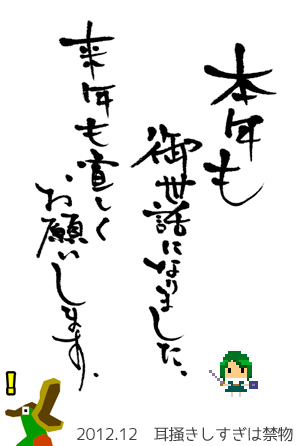 本年も
御世話になりました、
来年も宜しく
お願いします。
!
2012.12 耳掻きしすぎは禁物